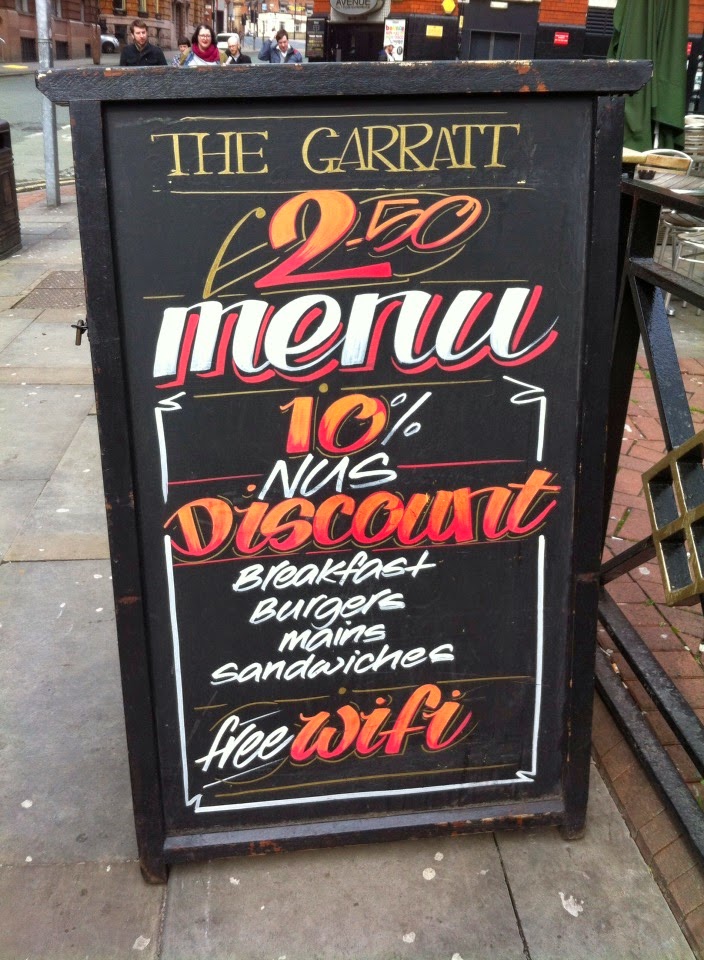 AVENUE
THE GARRATT
£2.50
menu
10%
NUS
Discount
Breakfast
Burgers
mains
sandwiches
free wifi